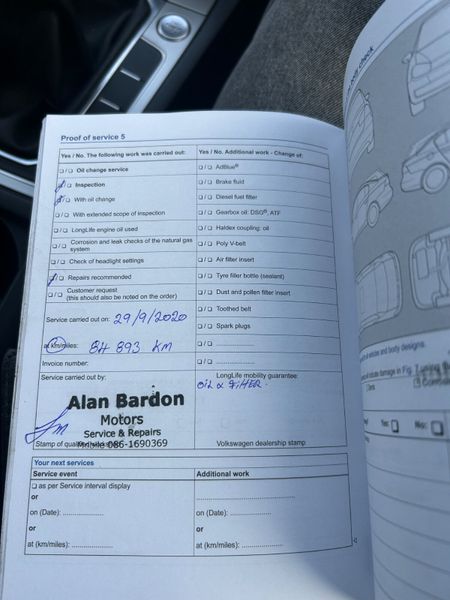 Proof of service 5
Yes / No. The following work was carried out:
❑ / ❑ Oil change service
❑ / ❑ Inspection
❑ / ❑ With oil change
❑ / ❑ With extended scope of inspection
❑ / ❑ LongLife engine oil used
❑ / ❑ Corrosion and leak checks of the natural gas
system
❑ / ❑ Check of headlight settings
❑ / ❑ Repairs recommended
❑ / ❑ Customer request
(this should also be noted on the order)
Service carried out on: 29/9/2020
at km/miles: 84 893 KM
Invoice number:
Service carried out by:
Alan Bardon
Motors
Service & Repairs
Mobile 086-1690369
Stamp of qualified
Yes / No. Additional work - Change of:
❑ / ❑ AdBlue®
❑ / ❑ Brake fluid
❑ / ❑ Diesel fuel filter
❑ / ❑ Gearbox oil: DSG®, ATF
❑ / ❑ Haldex coupling: oil
❑ / ❑ Poly V-belt
❑ / ❑ Air filter insert
❑ / ❑ Tyre filler bottle (sealant)
❑ / ❑ Dust and pollen filter insert
❑ / ❑ Toothed belt
❑ / ❑ Spark plugs
❑ / ❑ ....................
❑ / ❑ ....................
LongLife mobility guarantee:
OIL & FILTER.
Volkswagen dealership stamp
Your next services
Service event
❑ as per Service interval display
or
on (Date): ....................
or
at (km/miles): ....................
Additional work
....................
on (Date): ....................
or
at (km/miles): ....................
body check
and body designs.
Yes: ❑ No: ❑